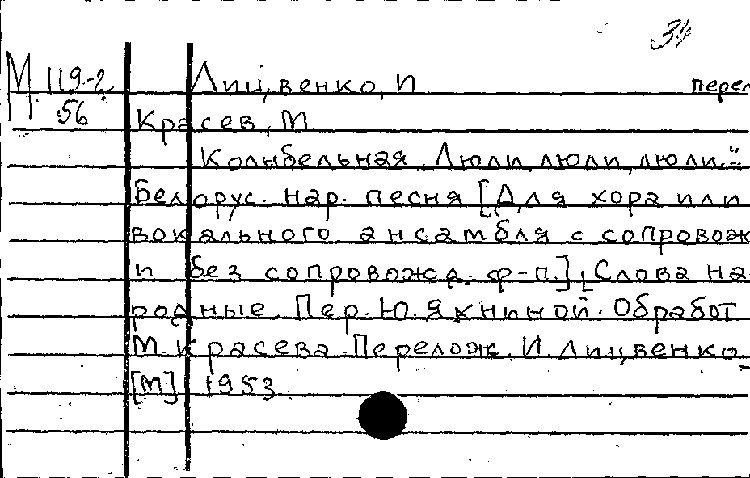 34
М 119-2 Лицвенко, И перел
56 Красев, М
Колыбельная "Люли, люли, люли."
Белорус. нар. песня [Для хора или
вокального ансамбля с сопровож
и без сопровожд. ф-п.], Слова на
родные. Пер. Ю. Яхниной. Обработ
М. Красева. Перелож. И. Лицвенко.
[М] 1953